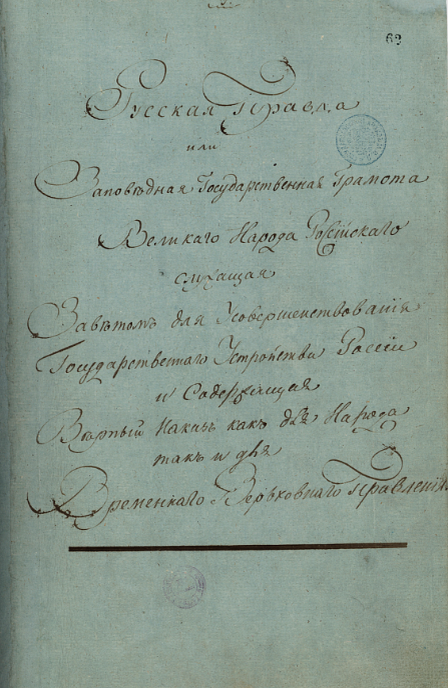 63
Русская Правда
или
Заповѣдная Государственная Грамота
Великаго Народа Россійскаго
служащая
Завѣтомъ для Усовершенствованія
Государственнаго Устройства Россіи
и Содержащая
Вѣрный Наказъ какъ для Народа
такъ и для
Временнаго Верьховнаго Правленія